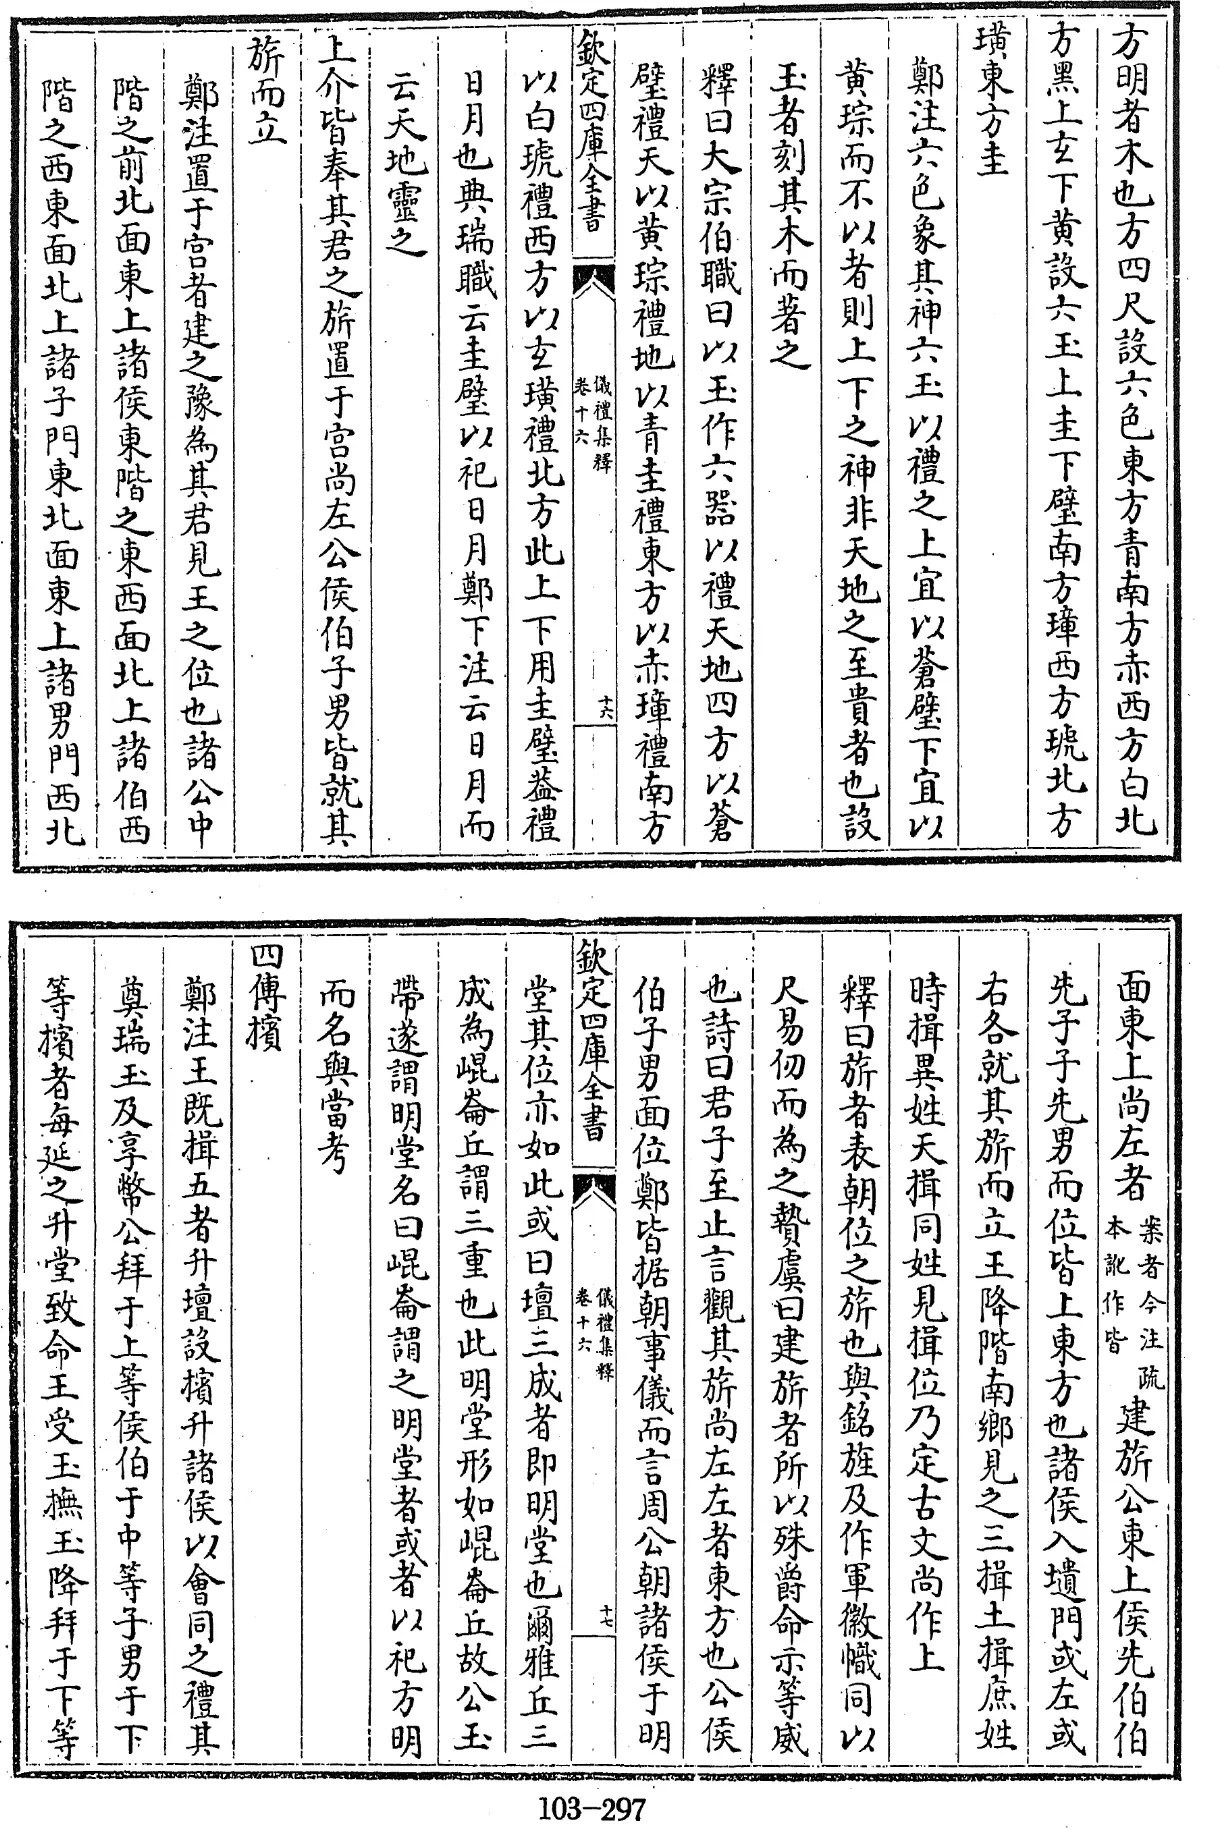 方明者木也方四尺設六色東方青南方赤西方白北
方黑上𤣥下黄設六玉上圭下璧南方璋西方琥北方
璜東方圭
鄭注六色象其神六玉以禮之上宜以蒼璧下宜以
黄琮而不以者則上下之神非天地之至貴者也設
玉者刻其木而著之
釋曰大宗伯職曰以玉作六器以禮天地四方以蒼
璧禮天以黄琮禮地以青圭禮東方以赤璋禮南方
欽定四庫全書
儀禮集釋
卷十六
十六
以白琥禮西方以𤣥璜禮北方此上下用圭璧葢禮
日月也典瑞職云圭璧以祀日月鄭下注云日月而
云天地靈之
上介皆奉其君之旂置于宫尚左公侯伯子男皆就其
旂而立
鄭注置于宫者建之豫為其君見王之位也諸公中
階之前北面東上諸侯東階之東西面北上諸伯西
階之西東面北上諸子門東北面東上諸男門西北
面東上尚左者
案者今注疏
本訛作皆
建旂公東上侯先伯伯
先子子先男而位皆上東方也諸侯入壝門或左或
右各就其旂而立王降階南鄉見之三揖土揖庶姓
時揖異姓天揖同姓見揖位乃定古文尚作上
釋曰旂者表朝位之旂也與銘旌及作軍徽幟同以
尺易仞而為之贄虞曰建旂者所以殊爵命示等威
也詩曰君子至止言觀其旂尚左左者東方也公侯
伯子男面位鄭皆据朝事儀而言周公朝諸侯于明
欽定四庫全書
儀禮集釋
卷十六
十七
堂其位亦如此或曰壇三成者即明堂也爾雅丘三
成為崐崙丘謂三重也此明堂形如崐崙丘故公玉
帶遂謂明堂名曰崐崙謂之明堂者或者以祀方明
而名與當考
四傳擯
鄭注王既揖五者升壇設擯升諸侯以會同之禮其
奠瑞玉及享幣公拜于上等侯伯于中等子男于下
等擯者每延之升堂致命王受玉撫玉降拜于下等
103-297